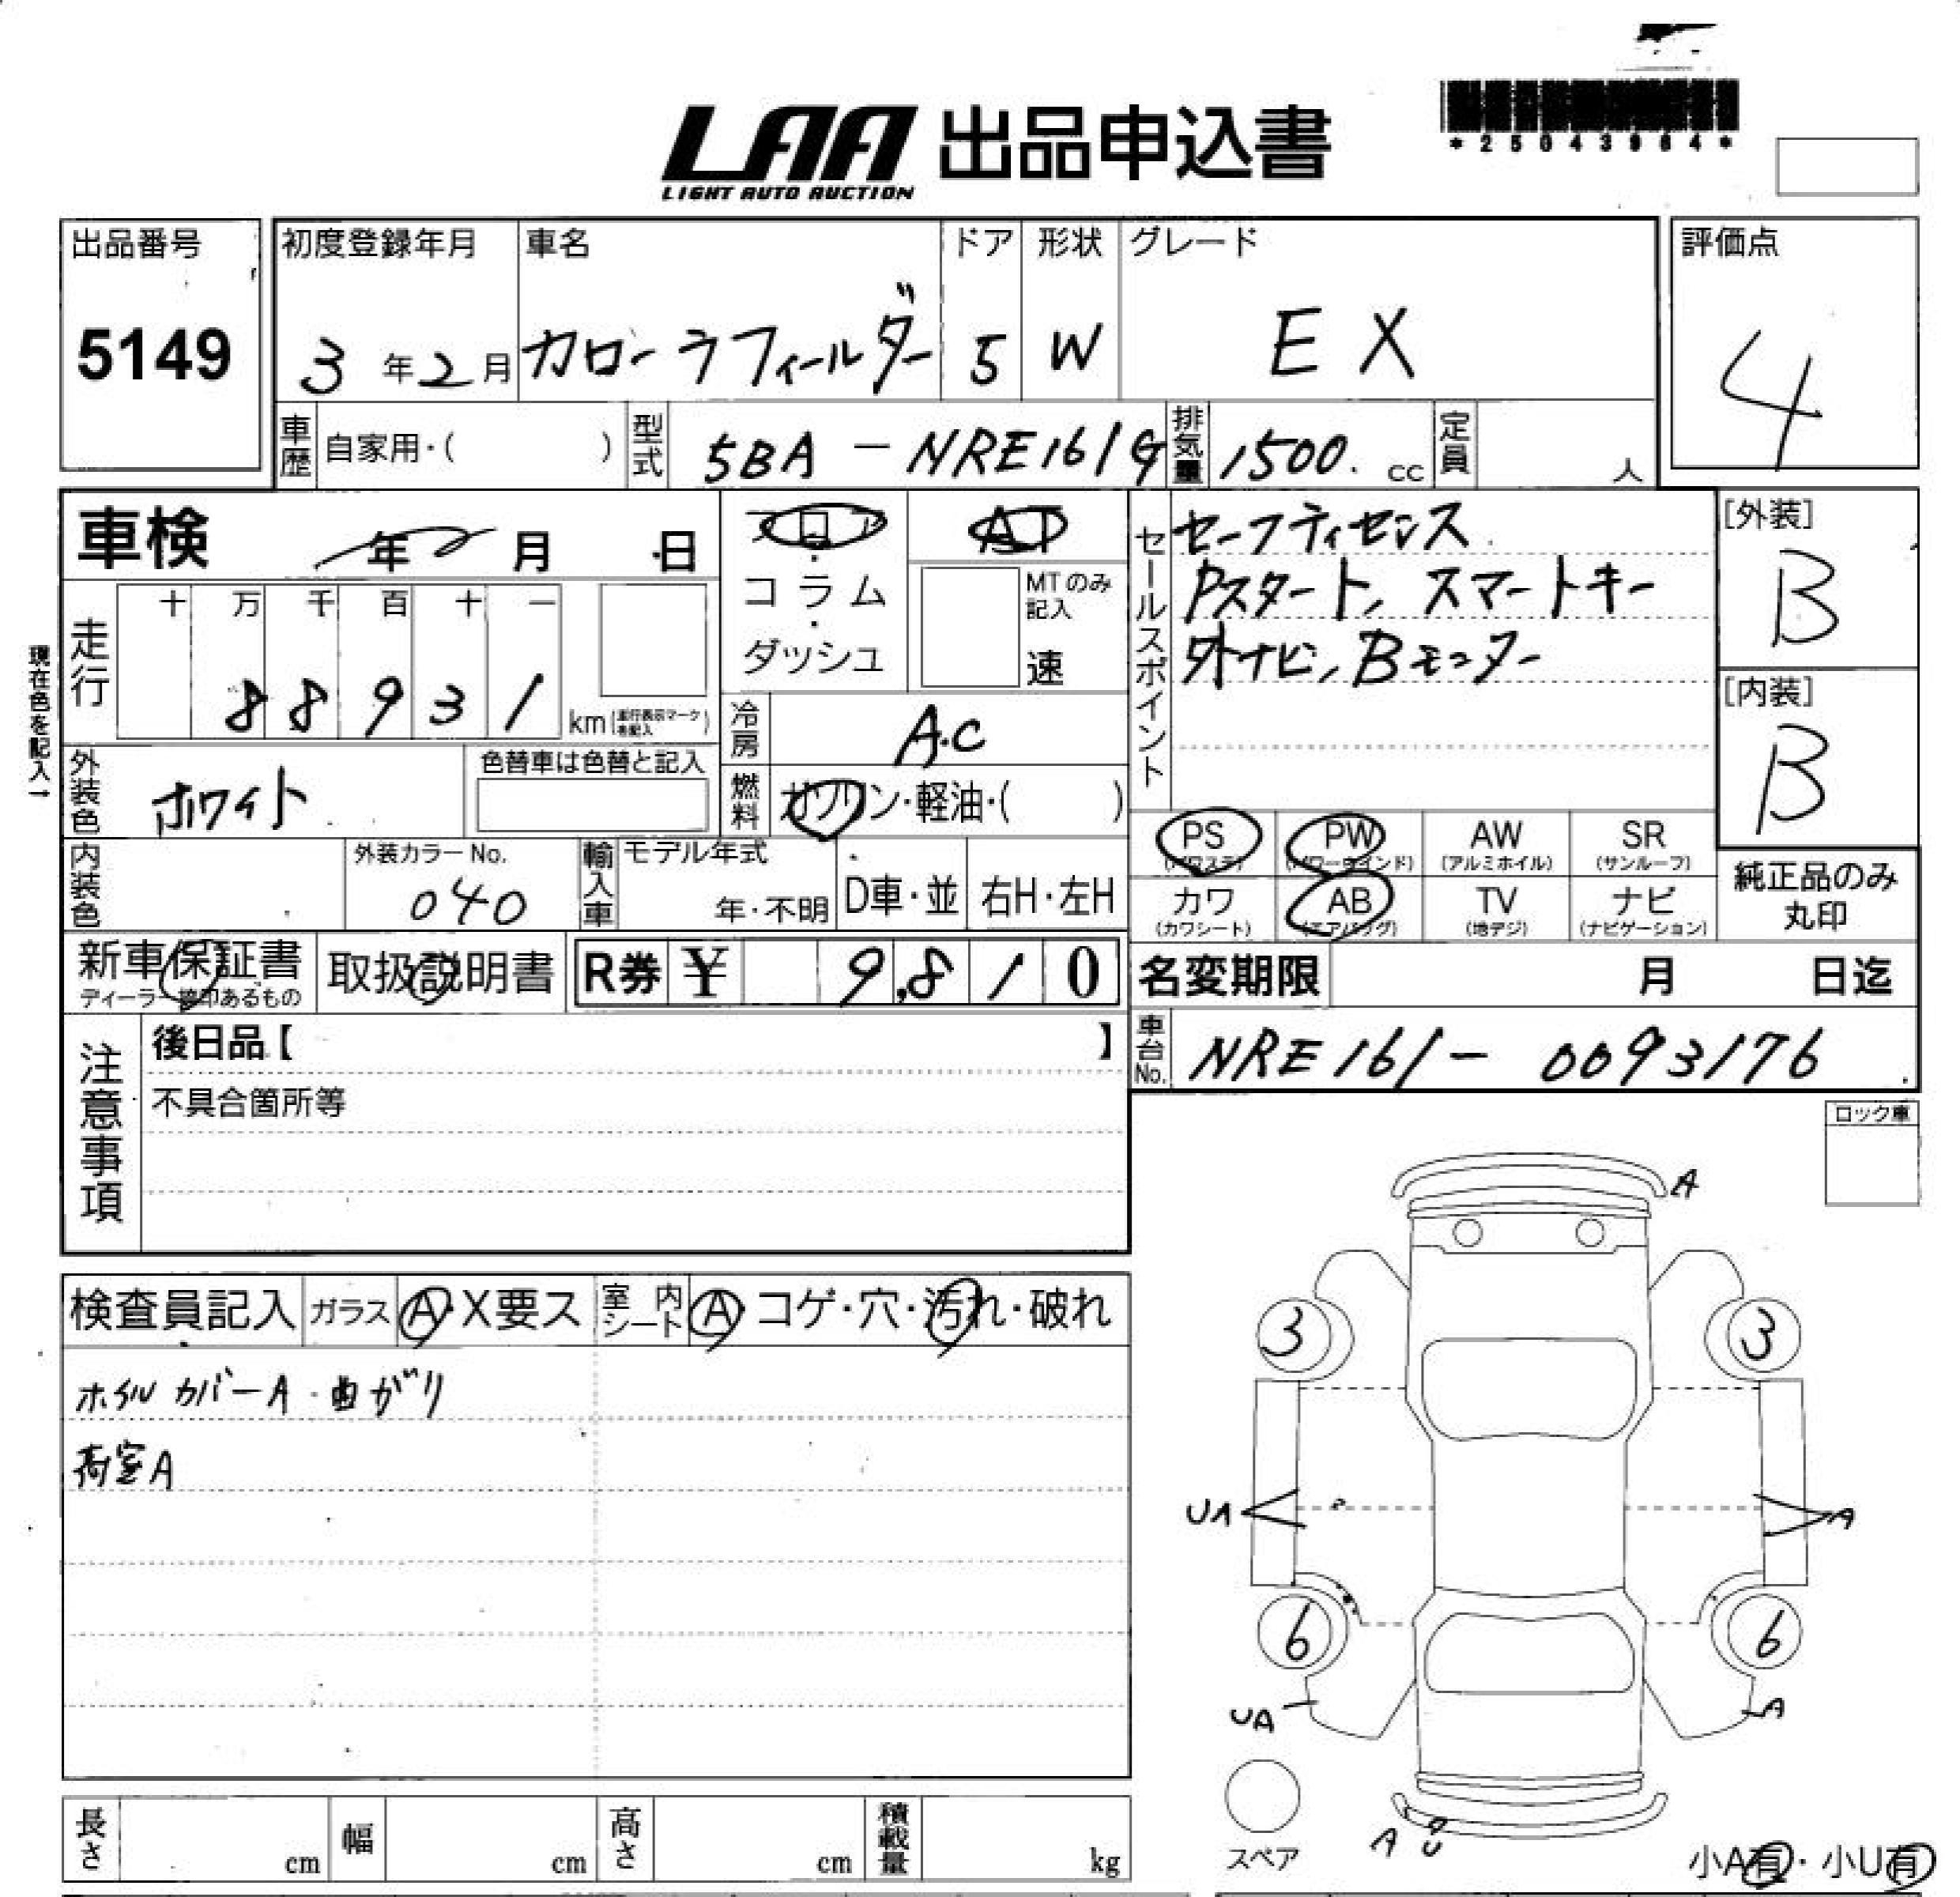 LAA 出品申込書
LIGHT AUTO AUCTION
*25043964*
出品番号
5149
初度登録年月
3年2月
車名
カローラフィールダー
ドア
5
形状
W
グレード
EX
評価点
4
車歴 自家用・( )
型式 5BA-NRE161G
排気量 1500. cc
定員 人
車検 年 月 日
フロア・コラム・ダッシュ
AT
MTのみ記入
速
セールスポイント
セーフティセンス
Pスタート、スマートキー
外ナビ、Bモニター
[外装]
B
[内装]
B
現在色を記入→
走行
十 万 千 百 十 一
88931 km(走行表示マークを記入)
冷房 A.C
外装色 ホワイト
色替車は色替と記入
燃料 ガソリン・軽油・( )
PS (パワステ)
PW (パワーウインド)
AW (アルミホイル)
SR (サンルーフ)
内装色
外装カラーNo.
040
輸入車 モデル年式
年・不明
D車・並
右H・左H
カワ (カワシート)
AB (エアバッグ)
TV (地デジ)
ナビ (ナビゲーション)
純正品のみ
丸印
新車保証書
ディーラー捺印あるもの
取扱説明書
R券 ¥ 9,810
名変期限 月 日迄
車台No. NRE161-0093176
注意事項
後日品【 】
不具合箇所等
ロック車
検査員記入 ガラス A・X要ス 室内シート A・コゲ・穴・汚れ・破れ
ホイルカバーA・曲がり
荷室A
A
3 3
UA A
6 6
UA A
スペア
A U
小A有・小U有
長さ cm 幅 cm 高さ cm 積載量 kg